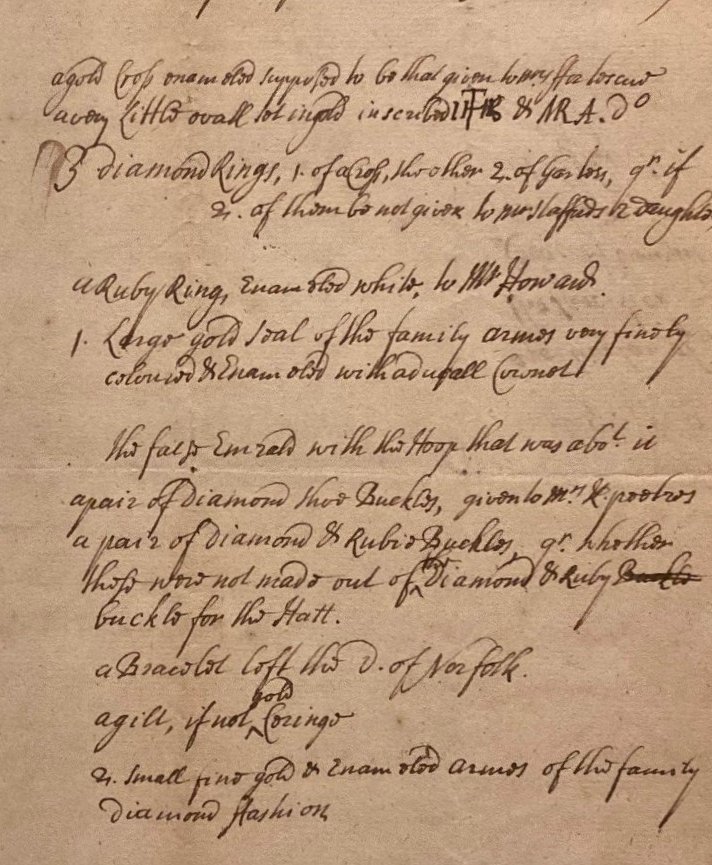 a gold Cross enameled supposed to be that given to mrs ffortescue
a very Little ovall set in gold inscribed & MRA. do
3 diamond Rings, 1. of a Cross, the other 2. of hartes, qr. if
2. of them be not given to mr Staffords 2 daughte
a Ruby Ring, Enameled white, to Mr Howard.
1. Large gold seal of the family armes very finely
coloured & Enameled with a ducall Coronet
the false Emrald with the Hoop that was abot. it
a pair of Diamond shoe Buckles, given to mrs
a pair of diamond & Rubie Buckles, qr. whether
these were not made out of the Diamond & Ruby Buckle
buckle for the Hatt.
a Bracelet left the d. of Norfolk.
a gilt, if not gold
2. small fine gold & Enameled armes of the family
diamond ffashion